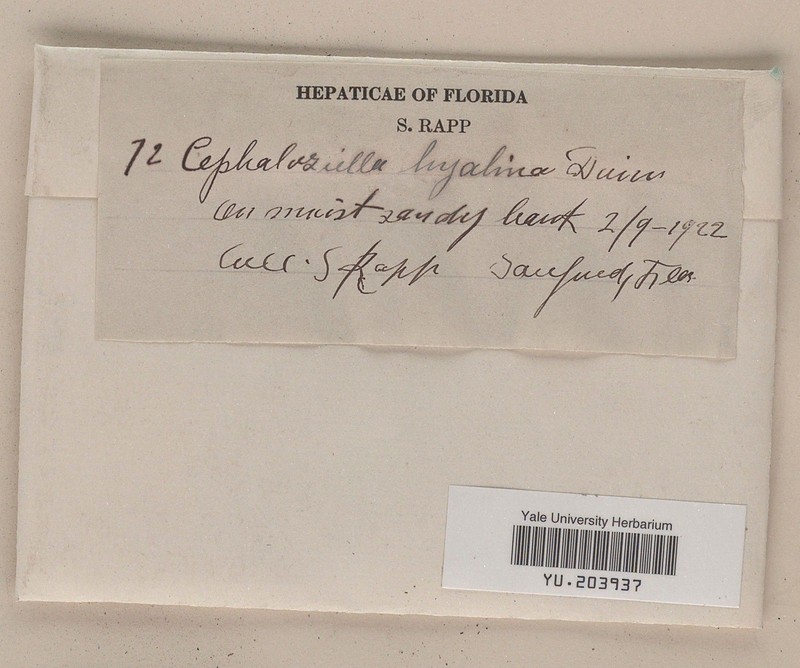 HEPATICAE OF FLORIDA
S. RAPP
72 Cephaloziella hyalina Douin
on moist sandy bank 2/9-1922
Coll. S Rapp Sanford, Fla.
Yale University Herbarium
YU.203937